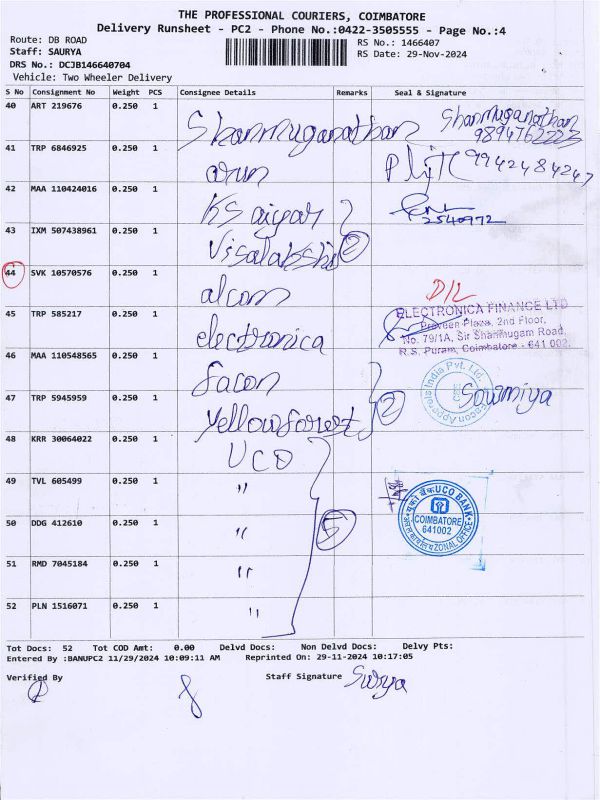 THE PROFESSIONAL COURIERS, COIMBATORE
Delivery Runsheet - PC2 - Phone No.:0422-3505555 - Page No.:4
Route: DB ROAD
RS No.: 1466407
Staff: SAURYA
RS Date: 29-Nov-2024
DRS No.: DCJB146640704
Vehicle: Two Wheeler Delivery
S No Consignment No Weight PCS Consignee Details Remarks Seal & Signature
40 ART 219676 0.250 1 Shanmuganathan Shanmuganathan
9894762223
41 TRP 6846925 0.250 1 arun 9942484247
42 MAA 110424016 0.250 1 KS aiyar
2540972
43 IXM 507438961 0.250 1 Visalakshi 2
44 SVK 10570576 0.250 1 alcom D/L
45 TRP 585217 0.250 1 electronica
ELECTRONICA FINANCE LTD
Praveen Plaza, 2nd Floor,
No. 79/1A, Sir Shanmugam Road,
R.S. Puram, Coimbatore - 641 002.
46 MAA 110548565 0.250 1 facon
47 TRP 5945959 0.250 1 Yellow forest 2 Sowmiya
48 KRR 30064022 0.250 1 UCO
49 TVL 605499 0.250 1 "
50 DDG 412610 0.250 1 " 5
UCO BANK
COIMBATORE
641002
ZONAL OFFICE
51 RMD 7045184 0.250 1 "
52 PLN 1516071 0.250 1 "
Tot Docs: 52 Tot COD Amt: 0.00 Delvd Docs: Non Delvd Docs: Delvy Pts:
Entered By :BANUPC2 11/29/2024 10:09:11 AM Reprinted On: 29-11-2024 10:17:05
Verified By Staff Signature Surya